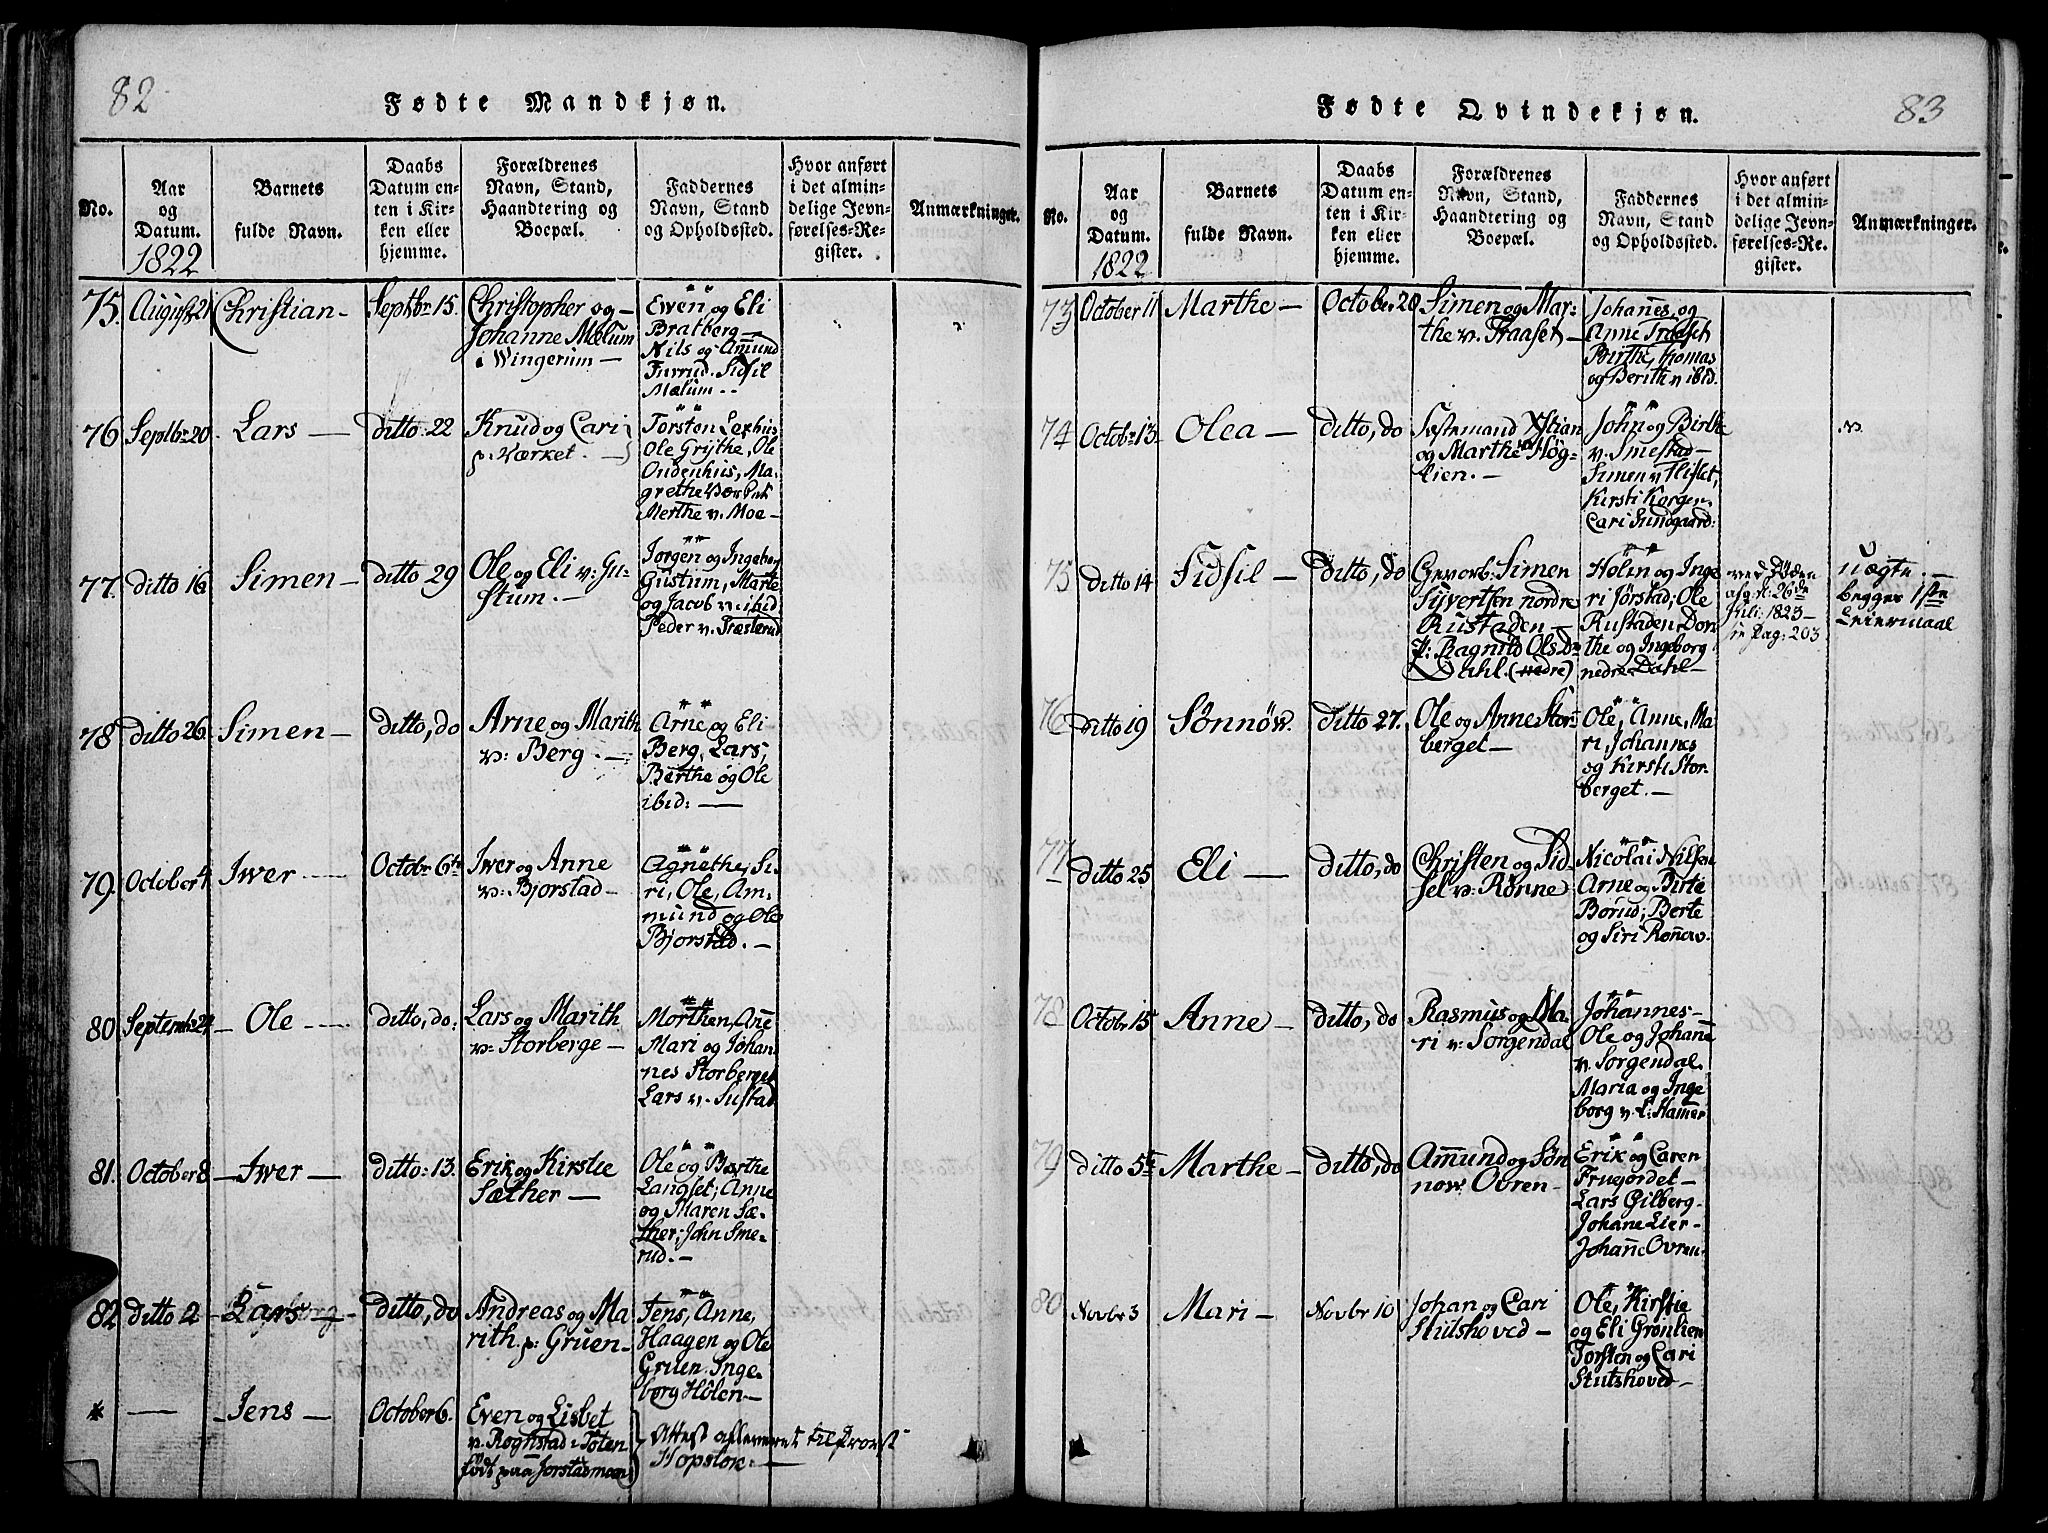 82
Fødte Mandkjøn.
No.
Aar
og
Datum.
1822
Barnets
fulde Navn.
Daabs
Datum en-
ten i Kir-
ken eller
hjemme.
Forældrenes
Navn, Stand,
Haandtering og
Boepæl.
Faddernes
Navn, Stand
og Opholdssted.
Hvor anført
i det almin-
delige Jevn-
førelses-Re-
gister.
Anmærkninger.
75.
August 21
Christian —
Septbr 15.
Christopher og —
Johanne Mælum
i Wingerum —
Ewen og Eli
Bratberg —
Nils og Amund
Furrud. Sidsil
Mælum. —
76
Septbr 20
Lars —
ditto: 22
Knud og Cari
p: Værket. —
Torsten
Ole Grythe, Ole
Ondenhus, Ma-
grethe
Merthe v. Moe —
77.
ditto 16
Simen —
ditto 29
Ole og Eli v: Gu-
stum. —
Jørgen og Ingebor
Gustum, Marte
og Jacob v: ibid
Peder v.
78
ditto 26.
Simen —
ditto, do
Arne og Marith
v: Berg. —
Arne og Eli
Berg, Lars,
Berthe og Ole
ibid: —
79.
October 4
Iwer —
Octobr 6te
Iwer og Anne
v: Bjorstad —
Agnethe, Si-
ri, Ole, Am-
mund og Ole
Bjorstad. —
80
Septembr 24
— Ole —
ditto, do:
Lars og Marith
v: Storberge —
Morthen, Añe
Mari og Johan-
nes Storberget
Lars v. Sustad
81.
October 8
— Iwer —
ditto: 13.
Erik og Kirstie
Sæther —
Ole og Berthe
Langset; Anne
og Maren Sæ-
ther; John Sme-
rud. —
82
ditto 2
— Lars —
ditto, do
Andreas og Ma-
rith p: Gruen —
Jens, Anne,
Haagen og Ole
Gruen. Inge-
borg Hølen —
* —
— Jens —
October 6.
Even og Lisbet
v. Rognstad i Toten
født paa Jorstadmoen
Attest afleveret til Provst
Hopstok —
83
Fødte Qvindekjøn.
No.
Aar
og
Datum.
1822
Barnets
fulde Navn.
Daabs
Datum en-
ten i Kir-
ken eller
hjemme.
Forældrenes
Navn, Stand,
Haandtering og
Boepæl.
Faddernes
Navn, Stand
og Opholdssted.
Hvor anført
i det almin-
delige Jevn-
førelses-Re-
gister.
Anmærkninger.
73
October 11
Marthe —
October 20
Simen og Mar-
the v. Traaset —
Johañes og
Anne Traaset
Birthe, Thomas
og Berith v ibid.
74
Octobr 13.
Olea —
ditto, do
Fæstemand Xstian
og Marthe Høg-
lien. —
John og Birthe
v. Smestad —
Simen v Flisset,
Kirsti Korgen
Cari Sundgaard:
75
ditto 14
Sidsil —
Ditto, do
Gevorb: Simen
Syvertsen nordre
Rustaden —
P: Ragnild Olsdr
Dahl. (nedre)
Holen og Inge
ri Jørstad; Ole
Rustaden, Dor-
the og Ingeborg
nedre Dahl —
ved Døden
afg: d: 26de
Juli: 1823 —
in Pag: 203
Uægte. —
begges 1ste
Leiermaal
76
ditto 19
Sønnöv.
Ditto 27.
Ole og Anne Stor-
berget —
Ole, Anne, Ma-
ri, Johannes
og Kirsti Stor-
berget. —
77
ditto 25
Eli —
ditto, do
Christen og Sid-
sel v: Rønne —
Nicolai Nilsen
Arne og Birte
Borud; Berte
og Siri Rønev.
78
Octobr 15
Anne —
ditto, do
Rasmus og Ma-
ri v: Sorgendal
Johannes —
Ole og Johañe
v. Sorgendal.
Maria og Inge-
borg v. L: Hamer
79
ditto 5te
Marthe —
ditto, do
Amund og Søn-
now Ovren —
Erik og Caren
Fruejordet —
Lars Gilberg —
Johane Lier —
Johañe Ovren.
80
Novbr 3
Mari —
Novbr 10
Johan og Cari
Stutshoved —
Ole, Kirstie
og Eli Grønlien
Torsten og Cari
Stutshoved —